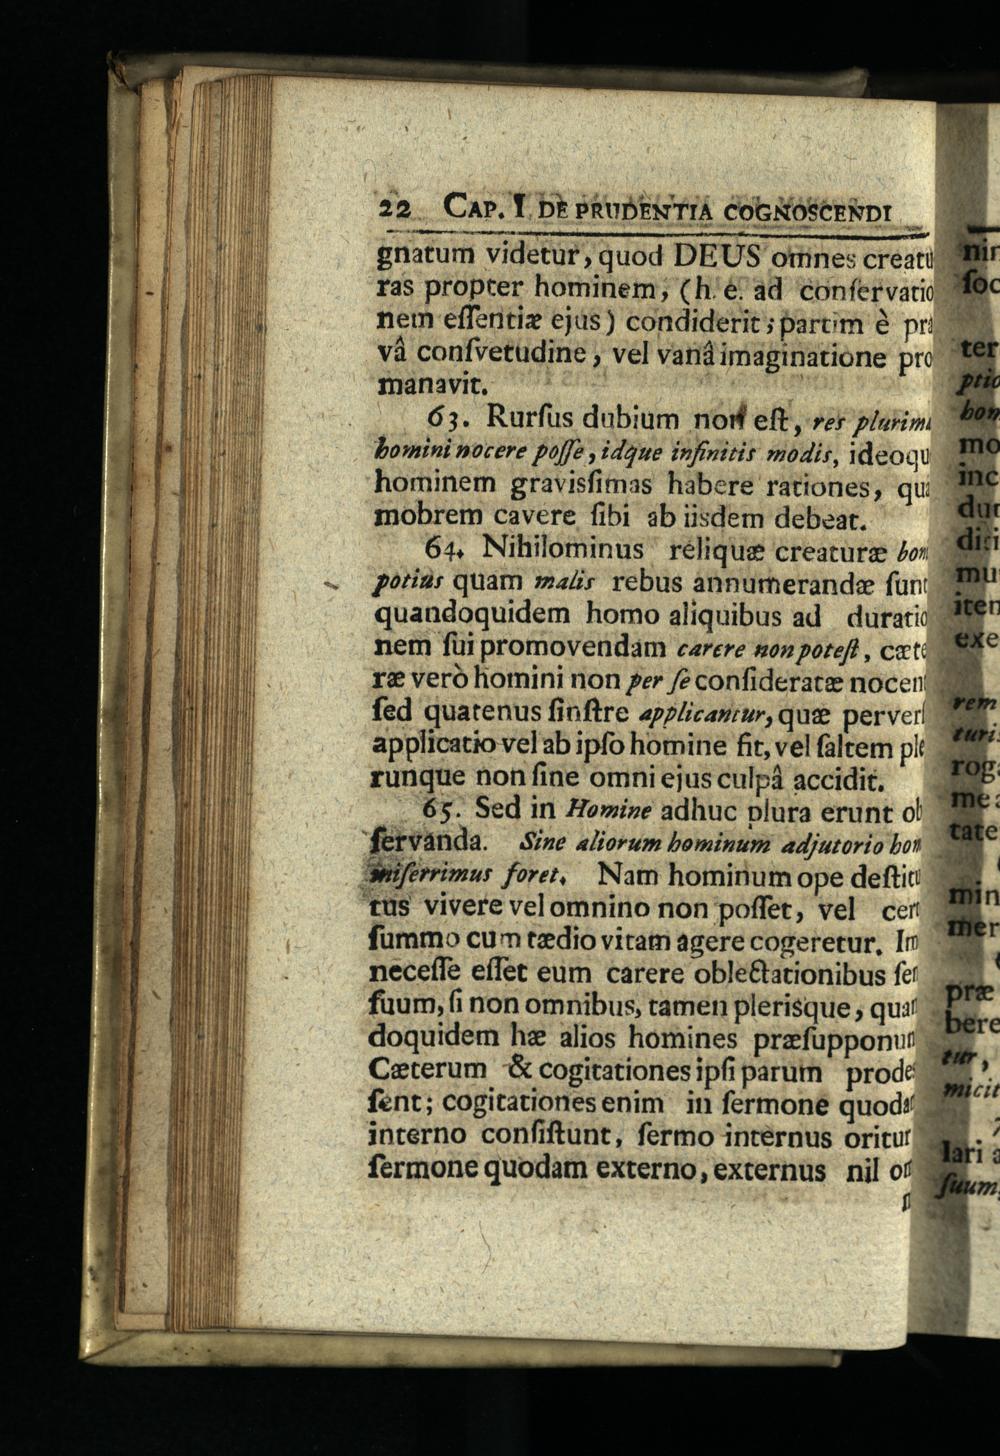 22 CAP. I DE PRUDENTIA COGNOSCENDI
gnatum videtur, quod DEUS omnes creatu
ras propter hominem, (h. e. ad conſervatio
nem eſſentiæ ejus) condiderit; partim è pra
vâ conſvetudine, vel vanâ imaginatione pro
manavit.
63. Rurſus dubium non eſt, res plurima
homini nocere poſſe, idque infinitis modis, ideoqu
hominem gravisſimas habere rationes, qua
mobrem cavere ſibi ab iisdem debeat.
64. Nihilominus reliquæ creaturæ bon
potius quam malis rebus annumerandæ ſunt
quandoquidem homo aliquibus ad duratio
nem ſui promovendam carere non poteſt, cæte
ræ verò homini non per ſe conſideratæ nocent
ſed quatenus ſinſtre applicantur, quæ perverſ
applicatio vel ab ipſo homine fit, vel ſaltem ple
runque non ſine omni ejus culpâ accidit.
65. Sed in Homine adhuc plura erunt ob
ſervanda. Sine aliorum hominum adjutorio hom
miſerrimus foret. Nam hominum ope deſtitu
tus vivere vel omnino non poſſet, vel cert
ſummo cum tædio vitam agere cogeretur. Im
neceſſe eſſet eum carere oblectationibus ſen
ſuum, ſi non omnibus, tamen plerisque, quan
doquidem hæ alios homines præſupponun
Cæterum & cogitationes ipſi parum prodeſ
ſent; cogitationes enim in ſermone quodam
interno conſiſtunt, ſermo internus oritur
ſermone quodam externo, externus nil ori
nin
ſoc
ter
ptio
hom
mo
inc
dur
diri
mu
iten
exe
rem
turi
roga
mea
tate
min
mer
præ
bere
tur,
micit
lari a
ſuum,